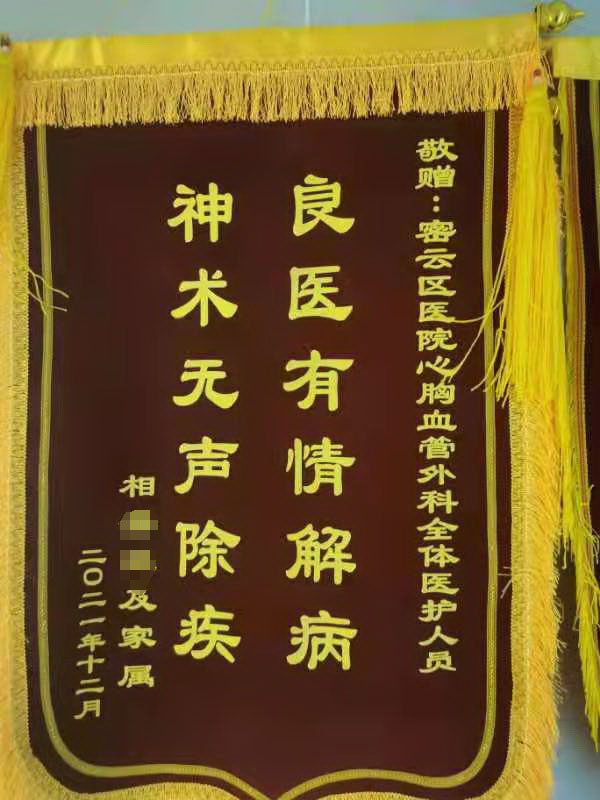 敬赠：密云区医院心胸血管外科全体医护人员
良医有情解病
神术无声除疾
相
及家属
二〇二一年十二月